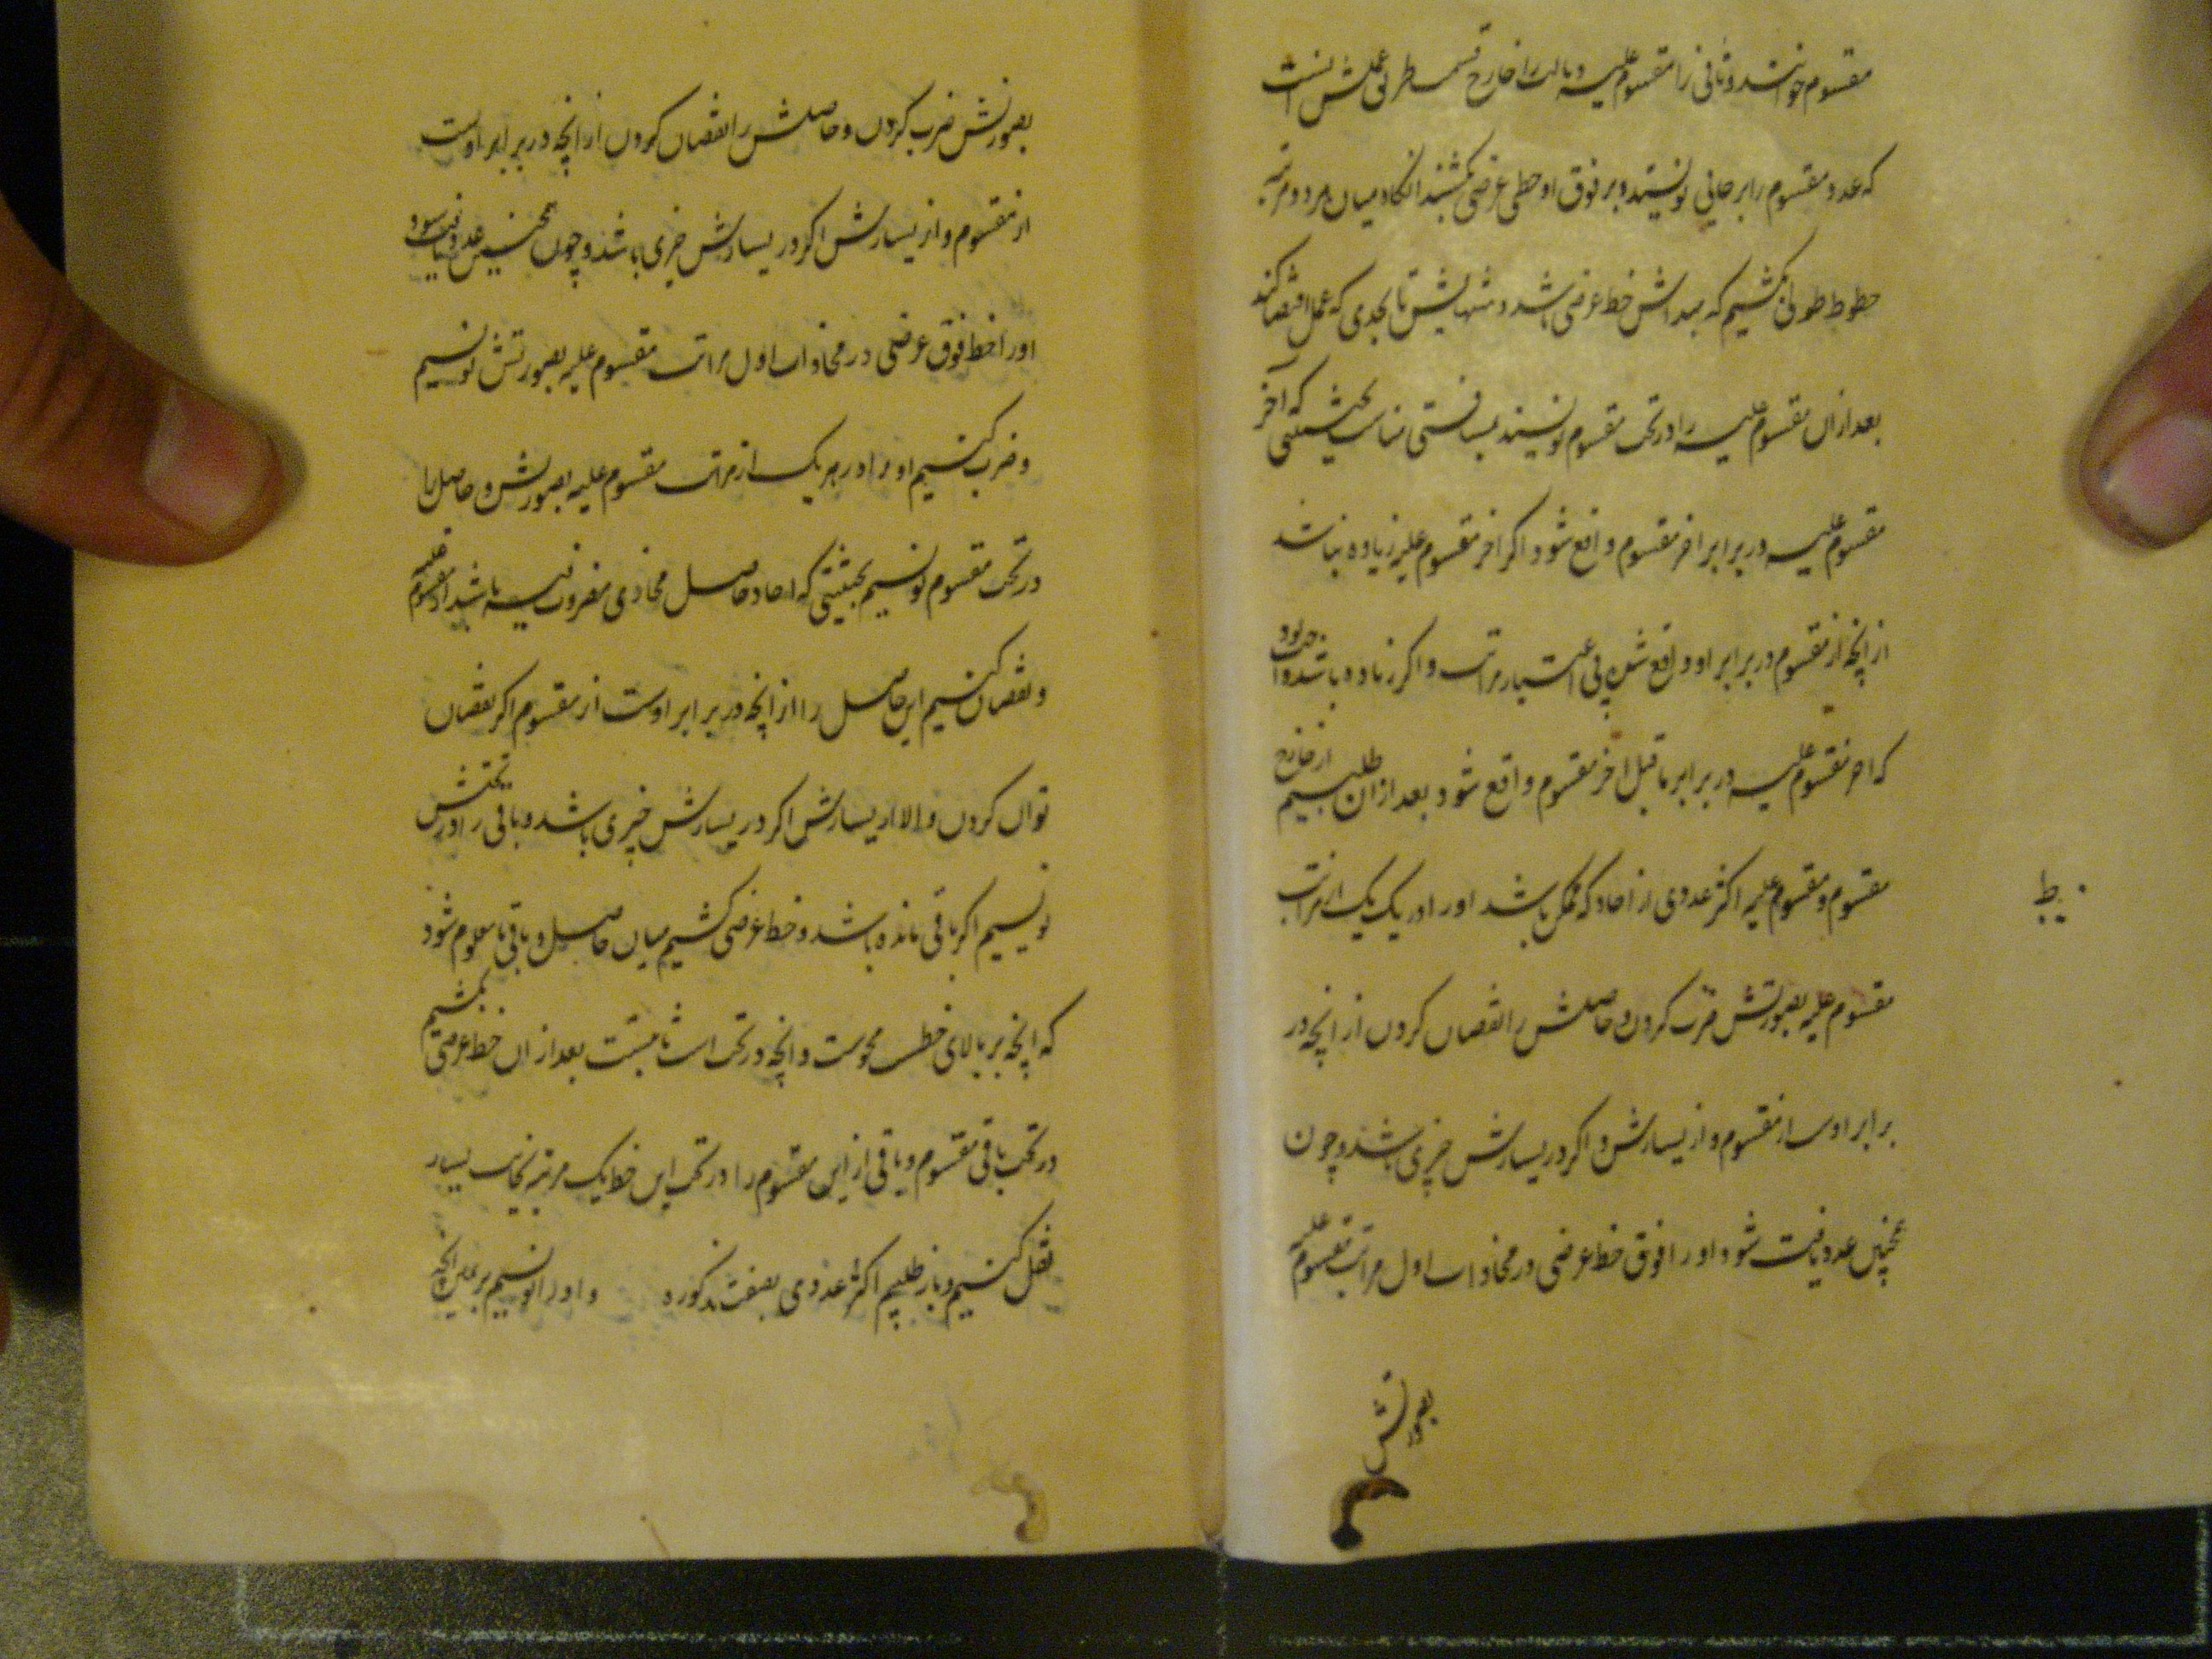 مقسوم خوانند و ثانی را مقسوم علیه و ثالث را خارج قسمت طریق عملش انست
که عدد مقسوم را بر جایی نویسند و بر فوق او خطی عرضی بکشند انکاه میان هر دو مرتبه
خطوط طولی بکشیم که مبداش خط عرضی باشد و منتهایش تا بحدی که عمل اقتضا کند
بعد از ان مقسوم علیه را در تحت مقسوم نویسند بمسافتی مناسب بحیثیتی که آخر
مقسوم علیه در برابر اخر مقسوم واقع شود اکر اخر مقسوم علیه زیاده نباشد
از انچه از مقسوم در برابر او واقع شده بی اعتبار مراتب و اکر زیاده باشد واجب بود
که اخر مقسوم علیه در برابر ماقبل اخر مقسوم واقع شود بعد از ان طلبیم از خارج
مقسوم و مقسوم علیه اکثر عددی از احاد که ممکن باشد او را در یک یک از مراتب
مقسوم علیه بصورتش ضرب کردن و حاصلش را نقصان کردن از انچه در
برابر اوست از مقسوم و از یسارش و اکر در یسارش چیزی باشد و چون
همچنین عدد یافت شود او را فوق خط عرضی در محاذات اول مراتب مقسوم علیه
بصورتش
بصورتش ضرب کردن و حاصلش را نقصان کردن از انچه در برابر اوست
از مقسوم و از یسارش اکر در یسارش چیزی باشد و چون همچنین عدد یافت شود
او را خط فوق عرضی در محاذات اول مراتب مقسوم علیه بصورتش نویسیم
و ضرب کنیم او را در هر یک از مراتب مقسوم علیه بصورتش و حاصل را
در تحت مقسوم نویسیم بحیثیتی که احاد حاصل محاذی مضروب فیه باشد از مقسوم علیه
و نقصان کنیم این حاصل را از انچه در برابر اوست از مقسوم اکر نقصان
توان کردن و الا از یسارش اکر در یسارش چیزی باشد و باقی را در تحتش
نویسیم اکر باقی مانده باشد و خط عرضی کشیم میان حاصل و باقی تا معلوم شود
که انچه بر بالای خطست محوست و انچه در تحت است ثابتست بعد از ان خط عرضی بکشیم
در تحت باقی مقسوم و باقی از این مقسوم را در تحت این خط یک مرتبه بجانب یسار
نقل کنیم و باز طلبیم اکثر عددی بصفت مذکوره و او را نویسیم بر یمین انچه